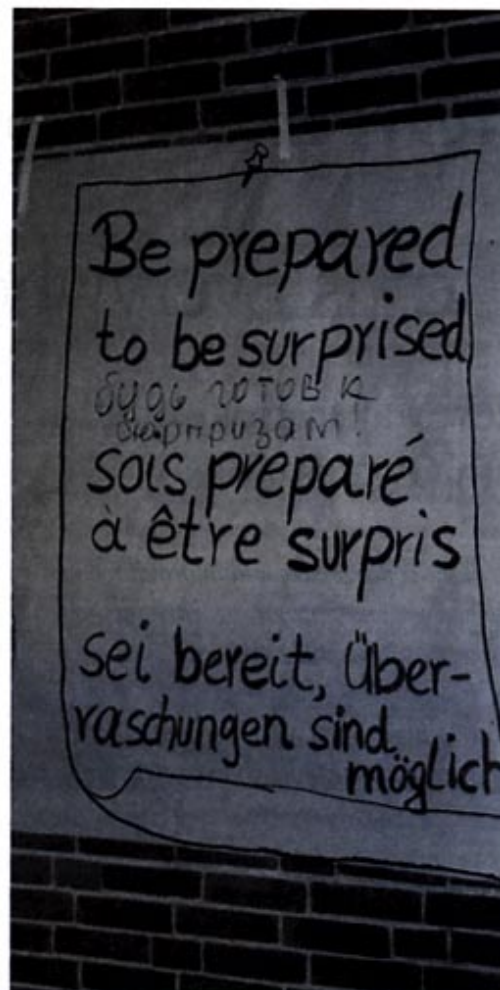 Be prepared
to be surprised
будь готов к
сюрпризам!
sois préparé
à être surpris
sei bereit, Über-
raschungen sind
möglich